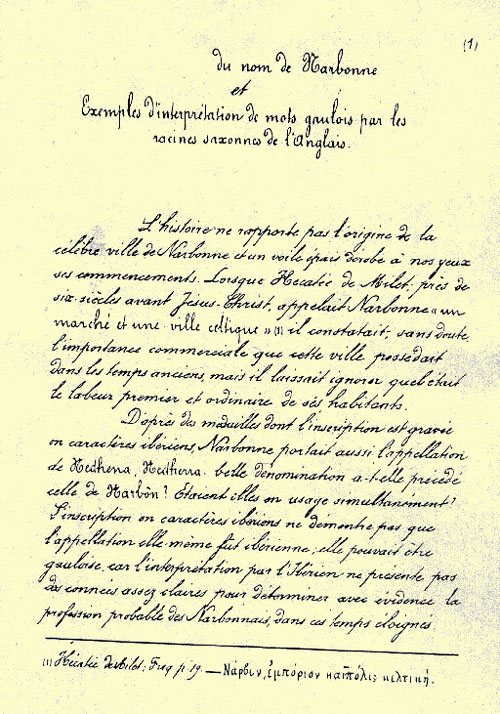 (1)
du nom de Narbonne
et
Exemples d'interprétation de mots gaulois par les
racines saxonnes de l'Anglais.
L'histoire ne rapporte pas l'origine de la
célèbre ville de Narbonne et un voile épais dérobe à nos yeux
ses commencements. Lorsque Hécatée de Milet, près de
six siècles avant Jésus-Christ, appelait Narbonne « un
marché et une ville celtique » (1) il constatait, sans doute
l'importance commerciale que cette ville possédait
dans les temps anciens, mais il laissait ignorer quel était
le labeur premier et ordinaire de ses habitants.
D'après des médailles dont l'inscription est gravée
en caractères ibériens, Narbonne portait aussi l'appellation
de Nedhena, Nedhena. Cette dénomination a-t-elle précédé
celle de Narbôn? Étaient elles en usage simultanément?
L'inscription en caractères ibériens ne démontre pas que
l'appellation elle-même fut ibérienne; elle pouvait être
gauloise, car l'interprétation par l'Ibérien ne présente pas
des données assez claires pour déterminer avec évidence la
profession probable des Narbonnais, dans ces temps éloignés
(1) Hécatée de Milet; Frag p. 19. — Νάρβων, ἐμπόριον καὶ πόλις κελτική.